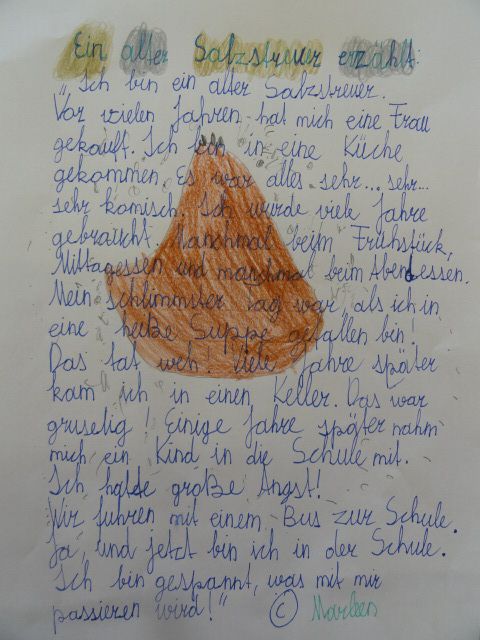 Ein alter Salzstreuer erzählt:
"Ich bin ein alter Salzstreuer.
Vor vielen Jahren hat mich eine Frau
gekauft. Ich bin in eine Küche
gekommen. Es war alles sehr... sehr...
sehr komisch. Ich wurde viele Jahre
gebraucht. Manchmal beim Frühstück,
Mittagessen und manchmal beim Abendessen.
Mein schlimmster Tag war, als ich in
eine heiße Suppe gefallen bin!
Das tat weh! Viele Jahre später
kam ich in einen Keller. Das war
gruselig! Einige Jahre später nahm
mich ein Kind in die Schule mit.
Ich hatte große Angst!
Wir fuhren mit einem Bus zur Schule.
Ja, und jetzt bin ich in der Schule.
Ich bin gespannt, was mit mir
passieren wird!" © Marleen